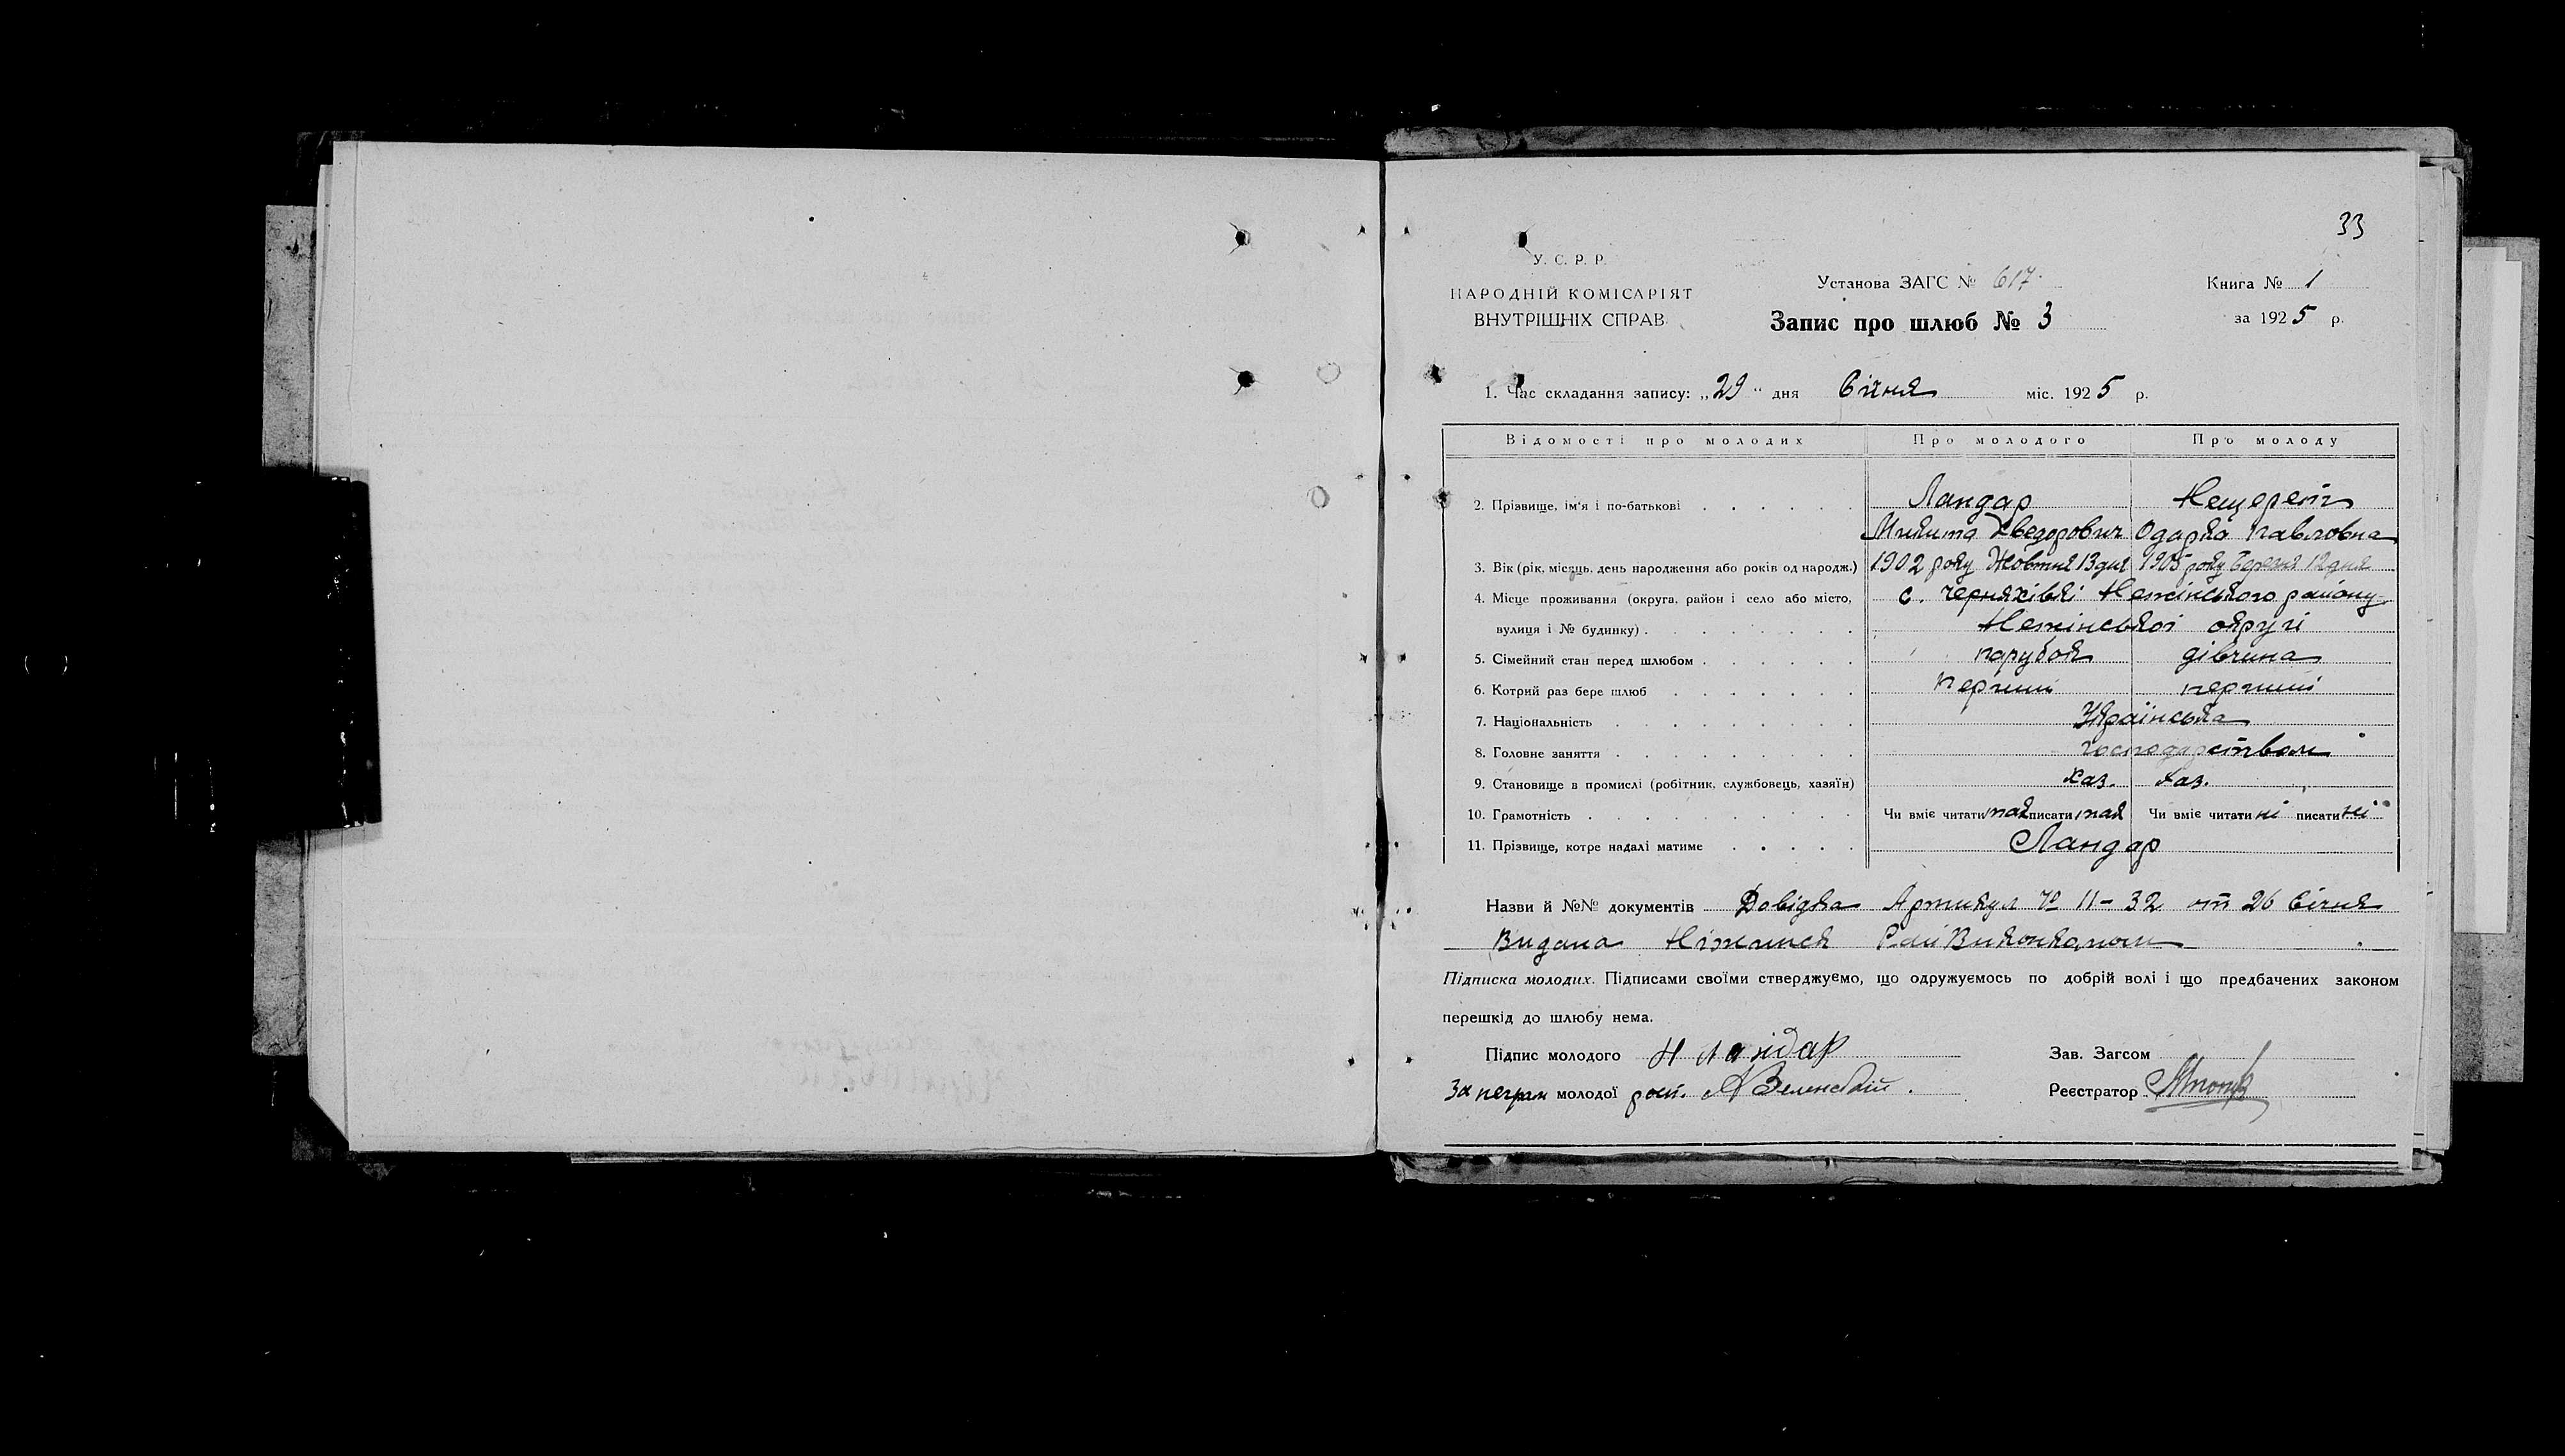 33
У. С. Р. Р.
НАРОДНІЙ КОМІСАРІЯТ
ВНУТРІШНІХ СПРАВ.
Установа ЗАГС № 617.
Запис про шлюб № 3
Книга № 1
за 1925 р.
1. Час складання запису: „29" дня Січня міс. 1925 р.
Відомості про молодих Про молодого Про молоду
2. Прізвище, ім'я і по-батькові Ландар Нещерет
Микита Хведорович Одарка Павловна
3. Вік (рік, місяць, день народження або років од народж.) 1902 року Жовтня 13 дня 1905 року Березня 12 дня
4. Місце проживання (округа, район і село або місто, с. Черняхівкі Неженського району
вулиця і № будинку) Неженської округі
5. Сімейний стан перед шлюбом парубок дівчина
6. Котрий раз бере шлюб перший перший
7. Національність Українська
8. Головне заняття господарством
9. Становище в промислі (робітник, службовець, хазяїн) хаз. хаз.
10. Грамотність Чи вміє читати так писати так Чи вміє читати ні писати ні
11. Прізвище, котре надалі матиме Ландар
Назви й №№ документів Довідка Артикул № 11-32 от 26 Січня
Видана Ніжинск РайВиконкомом
Підписка молодих. Підписами своїми стверджуємо, що одружуємось по добрій волі і що предбачених законом
перешкід до шлюбу нема.
Підпис молодого Н Ландар Зав. Загсом
За неграм молодої рост. А Зеленский. Реєстратор